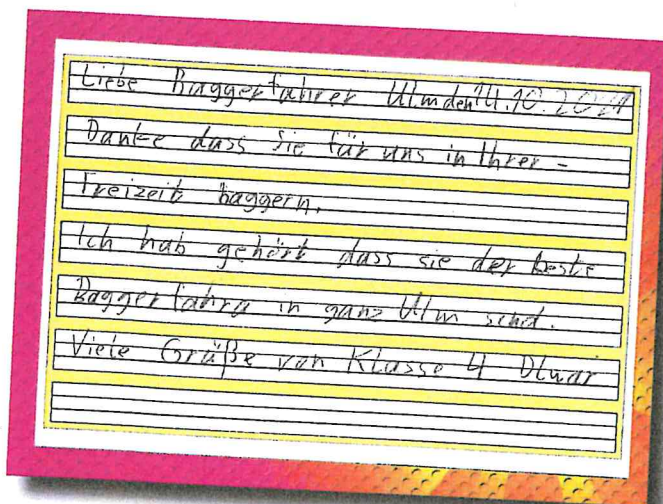 Liebe Baggerfahrer Ulm den 14.10.20
Danke dass Sie für uns in Ihrer -
Freizeit baggern.
Ich hab gehört dass sie der beste
Baggerfahra in ganz Ulm sind.
Viele Grüße von Klasse 4